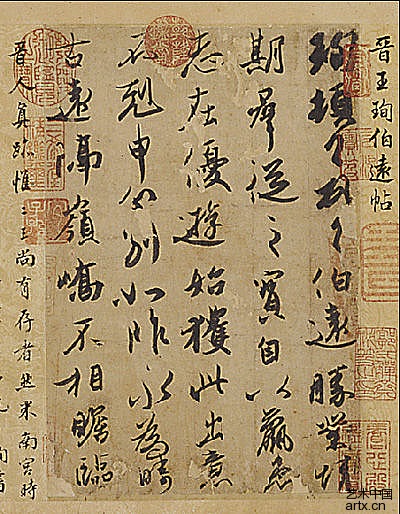 晋王珣伯远帖
珣頓首頓首伯遠勝業情
期羣從之寶自以羸患
志在優遊始獲此出意
不剋申分別如昨永為時
古遠隔嶺嶠不相瞻臨
晉人真跡惟二王尚有存者然米南宮時
艺术中国
artx.cn